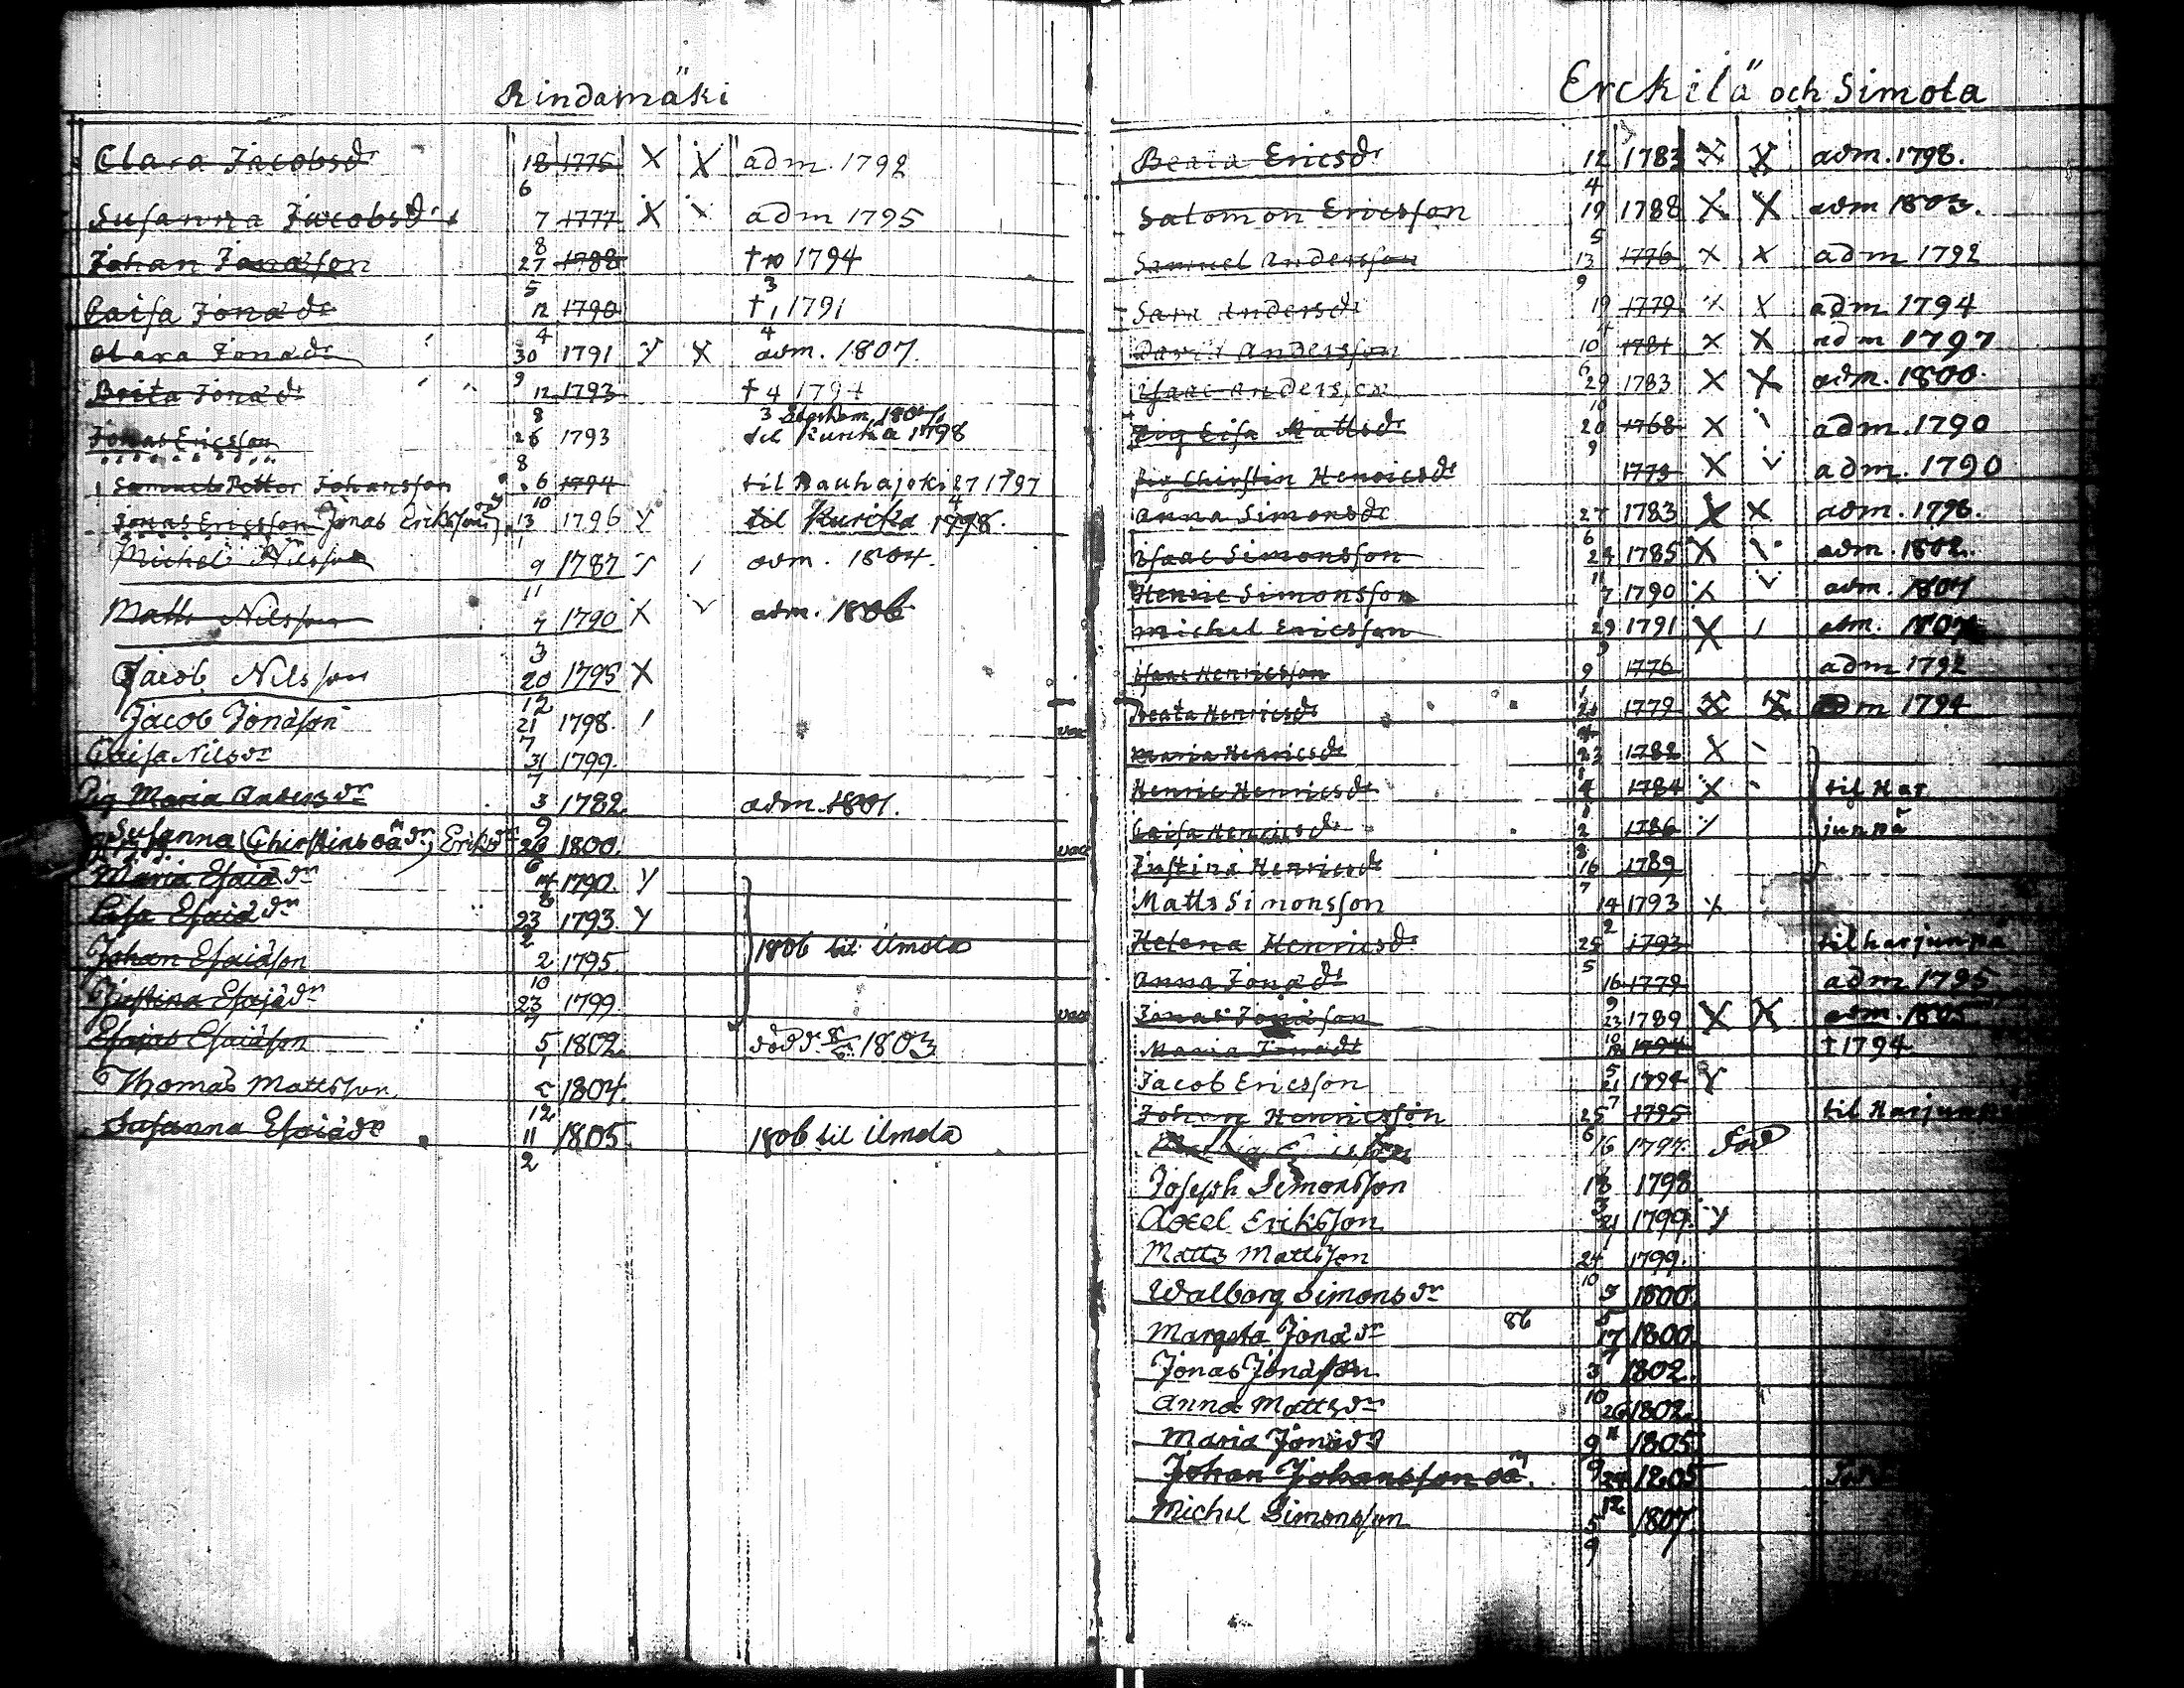 Rindamäki
Clara Jacobsdr 18/6 1775 X X adm 1792
Susanna Jacobsdr 7/8 1777 X X adm 1795
Johan Jonasson 27/5 1788 † 10/3 1794
Caisa Jonadr 12/4 1790 † 1/4 1791
Clara Jonadr 30/9 1791 y X adm. 1807.
Brita Jonadr 12/8 1793 † 4/3 1794
Jonas Ericsson 26/8 1793 til Kurika 1798
Samuel Petter Johansson 6/10 1794 til Kauhajoki 27/4 1797
Jonas Ericsson Jonas Eriksson 13/1 1796 y til Kurika 1798.
Michel Nilsson 9/11 1787 adm. 1804.
Matts Nilsson 4/3 1790 X adm. 1806
Jacob Nilsson 20/12 1795 X
Jacob Jonasson 21/7 1798.
Caisa Nilsdr 31/7 1799.
Pig Maria Andersdr 3/9 1782. adm. 1801.
Susanna (Christins oä dr) Eriksdr 20/6 1800. vac
Maria Esaiædr 14/8 1790. y
Lisa Esaiædr 23/2 1793 y
Johan Esaiæson 2/10 1795 1806 til Ilmola
Justina Esaiædr 23/7 1799. vac
Esaias Esaiæson 5/1 1802. död d. 1803
Thomas Mattsson 5/12 1804.
Susanna Esaiædr 11/2 1805. 1806 til Ilmola
Erckilä och Simola
Beata Ericsdr 12/4 1783 X X adm. 1798.
Salomon Ericsson 19/5 1788 X X adm 1803.
Samuel Andersson 13/9 1776 X X adm 1792
Sara Andersdr 19/4 1779 X X adm 1794
David Andersson 10/6 1781 X X adm 1797
Isaac Andersson 29/10 1783 X X adm. 1800.
Pig Lisa Mattsdr 20/9 1768 X adm. 1790
Pig Chirstin Henricsdr 1773 X adm. 1790
Anna Simonsdr 27/6 1783 X X adm. 1798.
Isaac Simonsson 24/11 1785 X adm. 1802.
Henric Simonsson 7/1 1790 X adm. 1807
Michel Ericsson 29/9 1791 X adm. 1807
Isaac Henricsson 9/1 1776 adm 1792
Beata Henricsdr 1779 X X adm 1794
Maria Henricsdr 23 1782 X
Henric Henricsdr 4 1784 X til Har
Caisa Henricsdr 2/8 1786 junpä
Justina Henricsdr 16/7 1789
Matts Simonsson 14/2 1793 X
Helena Henricsdr 25/5 1793 til harjunpä
Anna Jonadr 16/9 1779 adm 1795
Jonas Jonasson 23/10 1789 X X adm. 1805
Maria Jonadr 1794 † 1794
Jacob Ericsson 21/7 1794 y
Johan Henricsson 25/6 1795 til Harjunpä
16 1797. död
Joseph Simonsson 18/3 1798
Axel Eriksson 21/1 1799. y
Matts Mattsson 24/10 1799.
Walborg Simonsdr 3/5 1800.
Margeta Jonædr 86 17/7 1800.
Jonas Jonæson 3/10 1802.
Anna Mattsdr 26/11 1802.
Maria Jonædr 9/9 1805.
Johan Johansson oä. 24/12 1805
Michel Simonsson 5/9 1807.